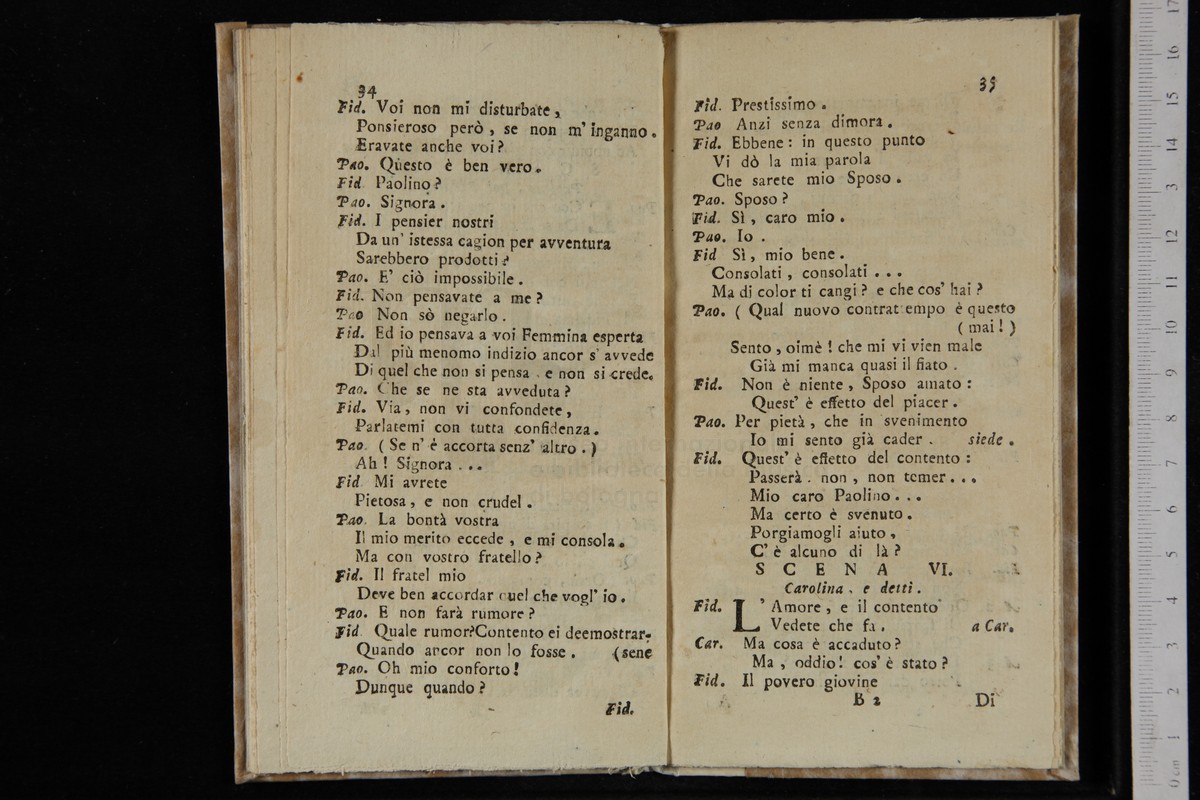 34
Fid. Voi non mi disturbate,
Ponsieroso però, se non m' inganno.
Eravate anche voi?
Pao. Questo è ben vero.
Fid Paolino?
Pao. Signora.
Fid. I pensier nostri
Da un' istessa cagion per avventura
Sarebbero prodotti?
Pao. E' ciò impossibile.
Fid. Non pensavate a me?
Pao Non sò negarlo.
Fid. Ed io pensava a voi Femmina esperta
Dal più menomo indizio ancor s' avvede
Di quel che non si pensa, e non si crede.
Pao. Che se ne sta avveduta?
Fid. Via, non vi confondete,
Parlatemi con tutta confidenza.
Pao. (Se n' è accorta senz' altro.)
Ah! Signora...
Fid Mi avrete
Pietosa, e non crudel.
Pao. La bontà vostra
Il mio merito eccede, e mi consola.
Ma con vostro fratello?
Fid. Il fratel mio
Deve ben accordar quel che vogl' io.
Pao. E non farà rumore?
Fid Quale rumor? Contento ei dee mostrar-
Quando ancor non lo fosse. (sene
Pao. Oh mio conforto!
Dunque quando?
Fid.
35
Fid. Prestissimo.
Pao Anzi senza dimora.
Fid. Ebbene: in questo punto
Vi dò la mia parola
Che sarete mio Sposo.
Pao. Sposo?
Fid. Sì, caro mio.
Pao. Io.
Fid Sì, mio bene.
Consolati, consolati...
Ma di color ti cangi? e che cos' hai?
Pao. (Qual nuovo contrattempo è questo
(mai!)
Sento, oimè! che mi vi vien male
Già mi manca quasi il fiato.
Fid. Non è niente, Sposo amato:
Quest' è effetto del piacer.
Pao. Per pietà, che in svenimento
Io mi sento già cader. siede.
Fid. Quest' è effetto del contento:
Passerà. non, non temer...
Mio caro Paolino...
Ma certo è svenuto.
Porgiamogli aiuto,
C' è alcuno di là?
SCENA VI.
Carolina, e detti.
Fid. L' Amore, e il contento
Vedete che fa. a Car.
Car. Ma cosa è accaduto?
Ma, oddio! cos' è stato?
Fid. Il povero giovine
B 2 Di